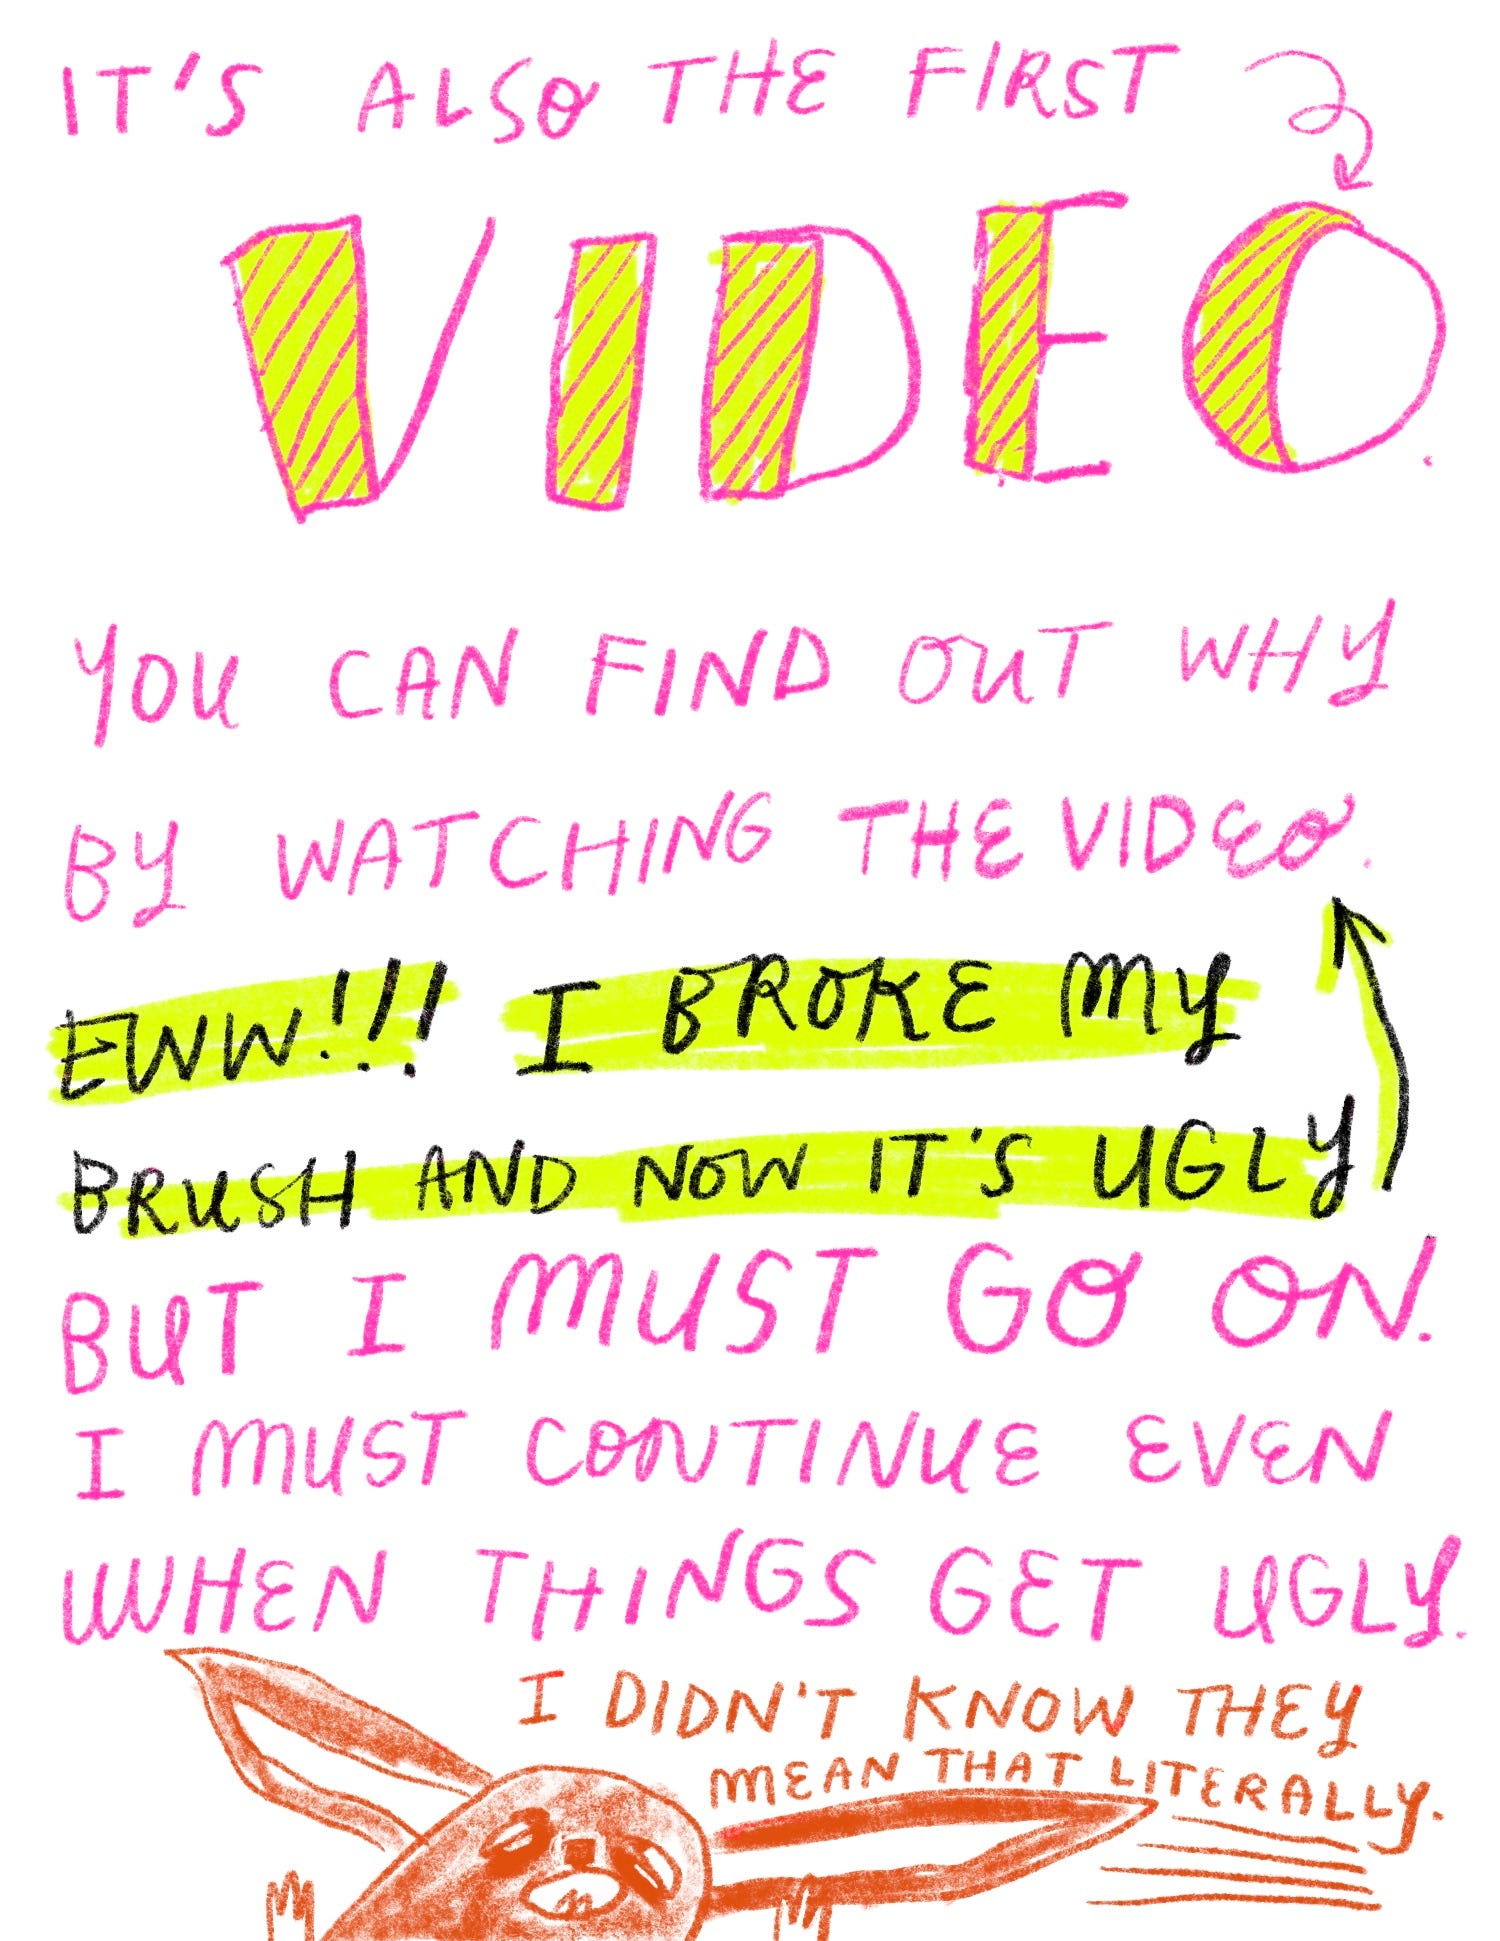 IT'S ALSO THE FIRST
VIDEO.
YOU CAN FIND OUT WHY
BY WATCHING THE VIDEO.
EWW!!! I BROKE MY
BRUSH AND NOW IT'S UGLY
BUT I MUST GO ON.
I MUST CONTINUE EVEN
WHEN THINGS GET UGLY.
I DIDN'T KNOW THEY
MEAN THAT LITERALLY.